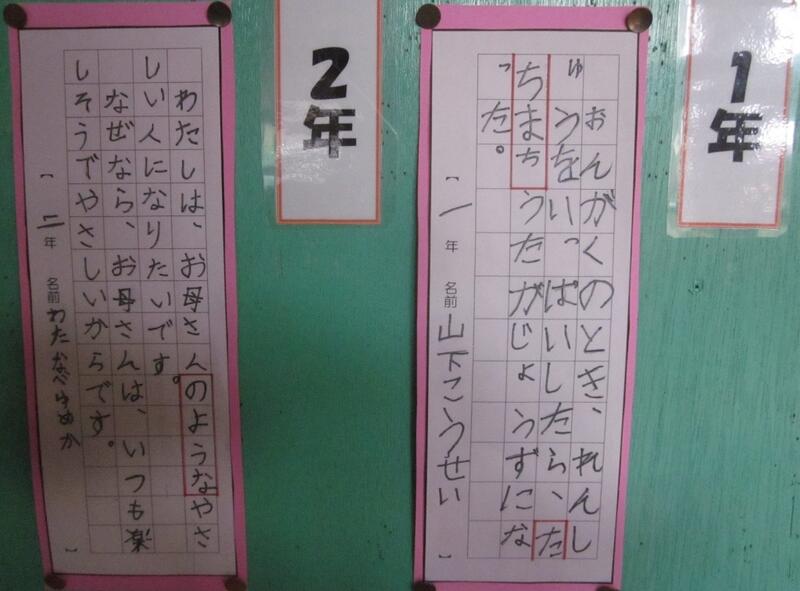 1年
おんがくのとき、れんし
ゅうをいっぱいしたら、た
ちまちうたがじょうずにな
った。
【一年 名前 山下こうせい】
2年
わたしは、お母さんのようなやさ
しい人になりたいです。
なぜなら、お母さんは、いつも楽
しそうでやさしいからです。
【二年 名前 わたなべゆめか】